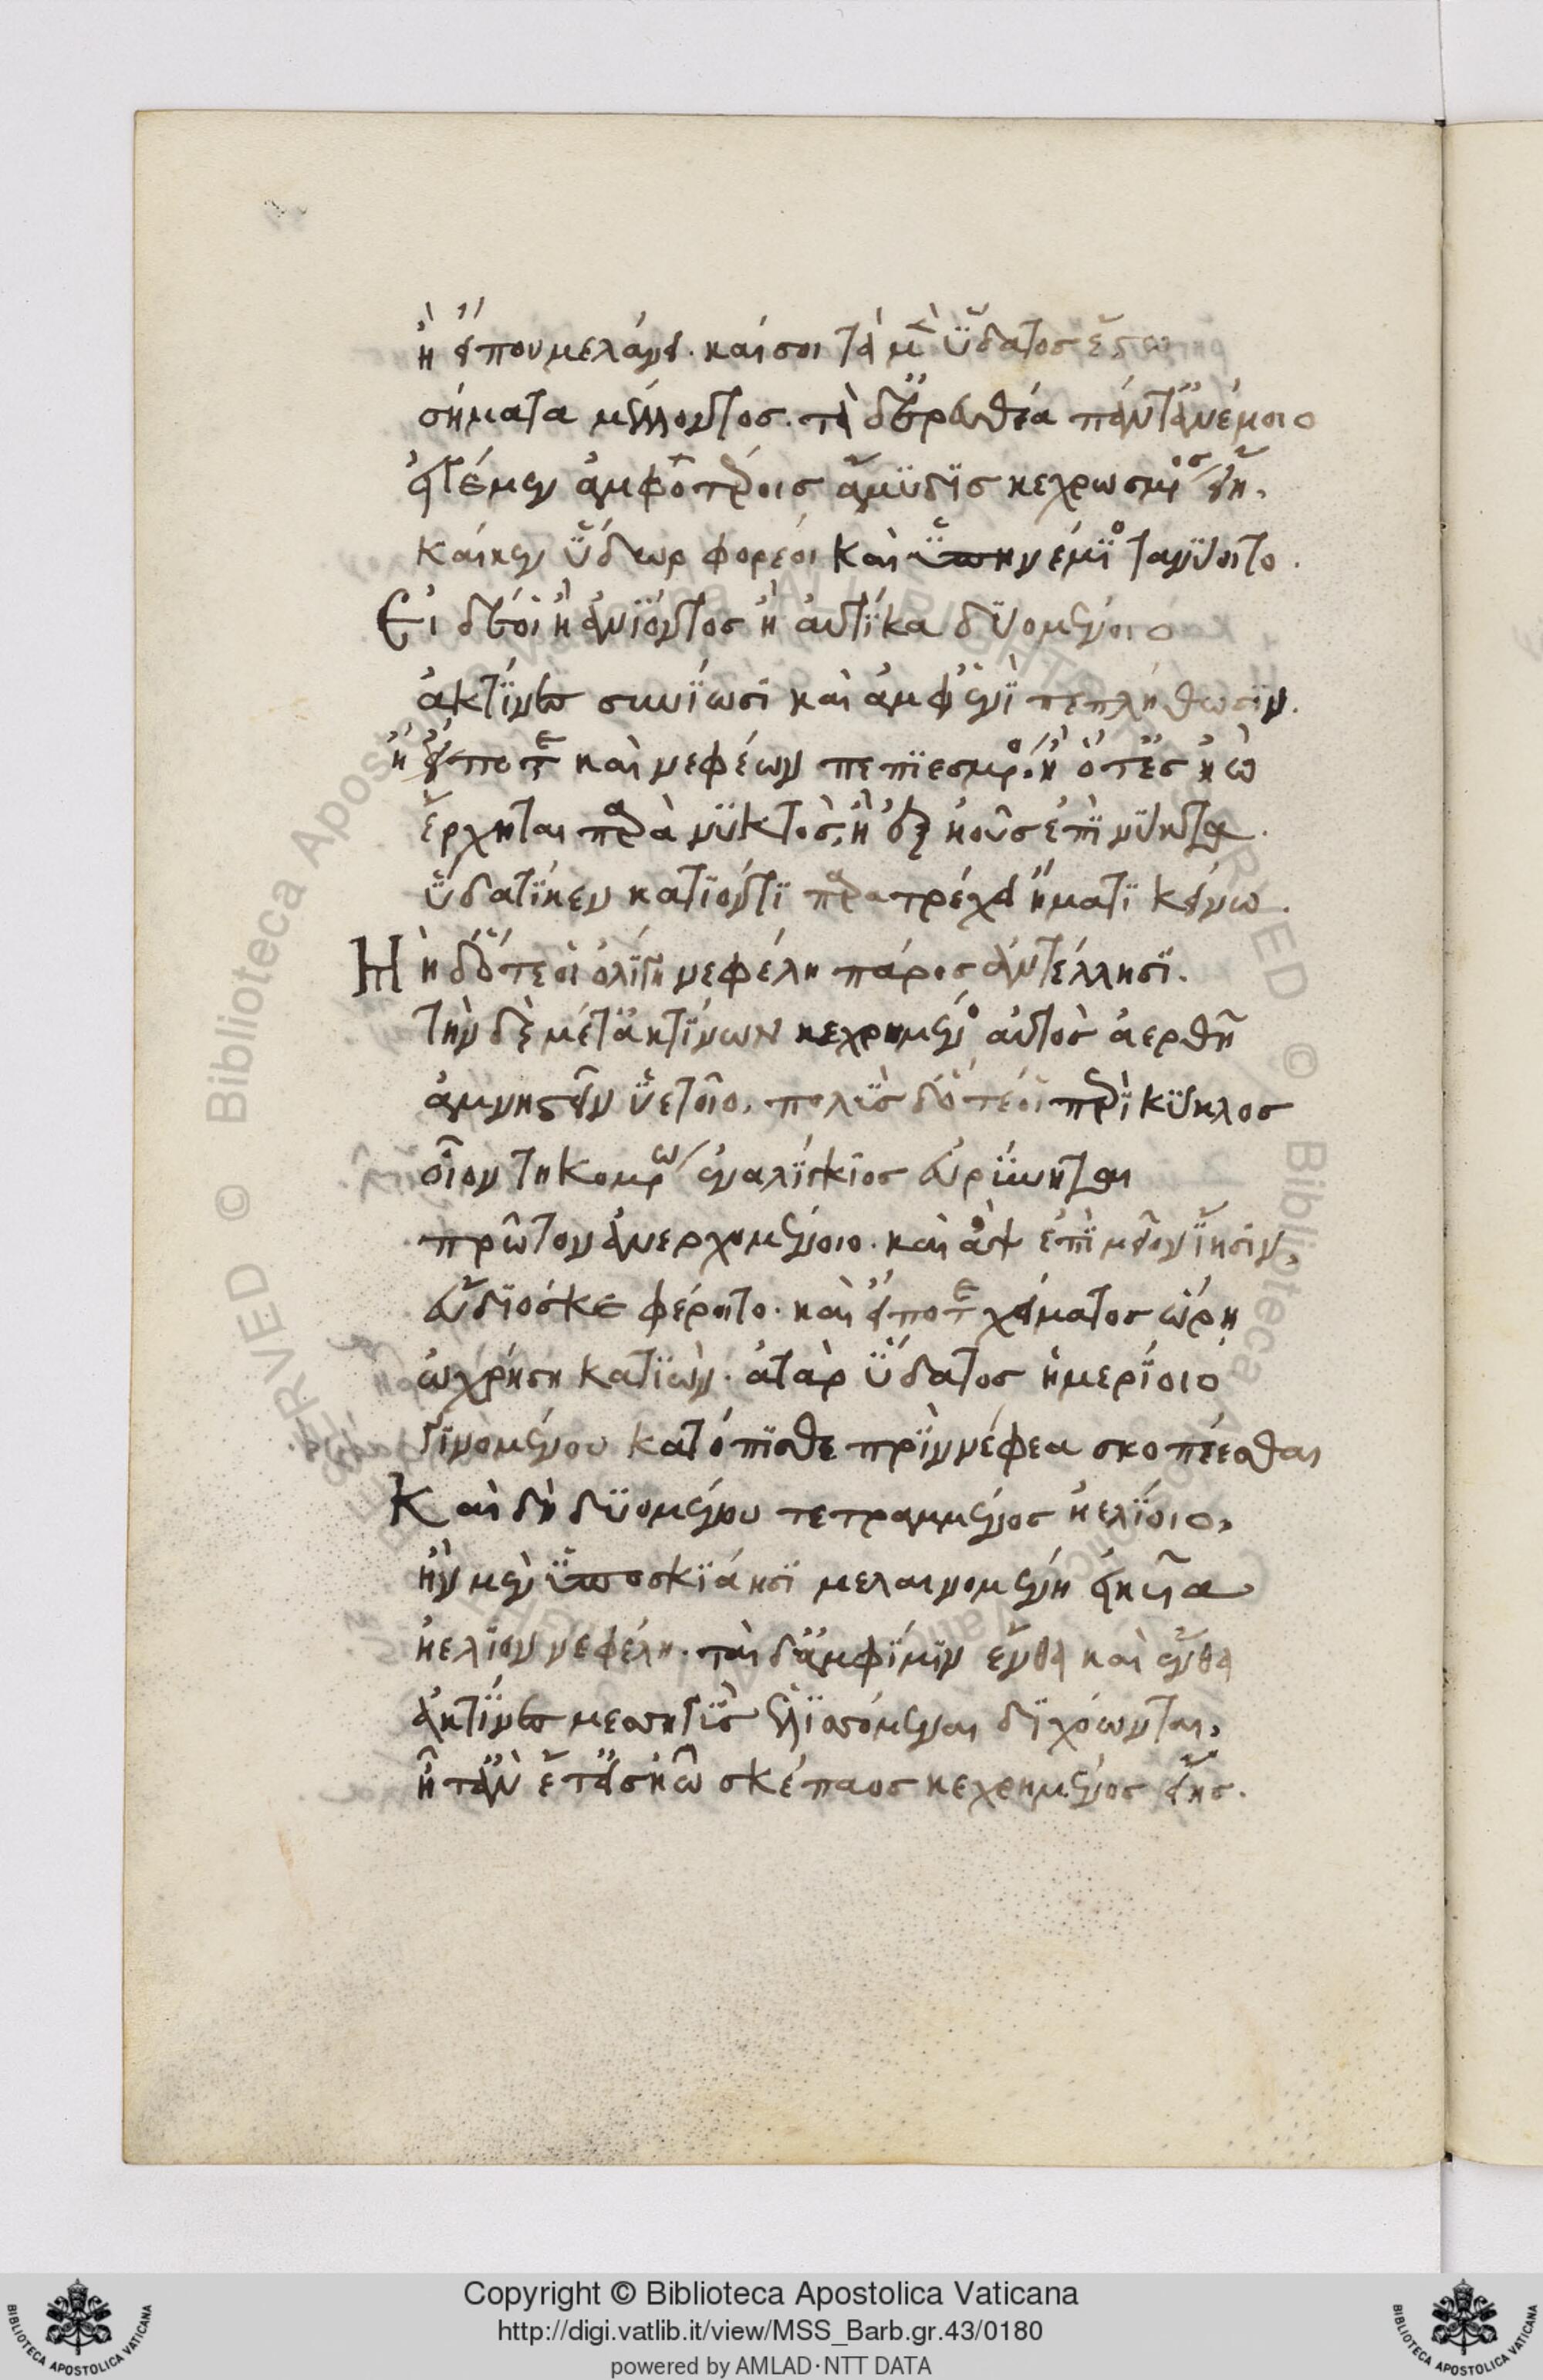 ἢ εἴπου μελάνει· καί σοι τὰ μὲν ὕδατος ἔστω
σήματα μέλλοντος· τὰ δ' ἐρευθέα πάντ' ἀνέμοιο
εἴ γε μὲν ἀμφοτέροις ἄμυδις κεχρωσμένος εἴη,
καί κεν ὕδωρ φορέοι καὶ ὑπηνέμιος τανύοιτο.
Εἰ δέ οἱ ἢ ἀνϊόντος ἢ αὐτίκα δυομένοιο
ἀκτῖνες συνίωσι καὶ ἀμφ' ἑνὶ πεπλήθωσιν.
ἢ εἴποτε καὶ νεφέων πεπιεσμένος, ἢ ὅτ' ἐς ἠῶ
ἔρχηται παρὰ νυκτὸς, ἢ ἐξ ἠοῦς ἐπὶ νύκτα.
ὕδατί κεν κατιόντι παρατρέχει ἤματι κείνῳ.
Η ἢ δ' ὅτε οἱ ὀλίγη νεφέλη πάρος ἀντέλλησι.
τὴν δὲ μέτ' ἀκτίνων κεχρημένος αὐτὸς ἀερθῇ
ἀμνηστεῖν ὑετοῖο. πολὺς δ' ὅτε οἱ περὶ κύκλος
οἷον τηκομένῳ ἐναλίγκιος εὐρύνηται
πρῶτον ἀνερχομένοιο. καὶ ἂψ ἐπὶ μεῖον ἴησιν,
εὔδιός κε φέροιτο. καὶ εἴποτε χείματος ὥρῃ
ὠχρήσῃ κατιών. ἀτὰρ ὕδατος ἡμερίοιο
γινομένου κατόπισθε πρὶν νέφεα σκοπέεσθαι
Καὶ δὴ δυομένου τετραμμένος ἠελίοιο,
ἢν μὲν ὑποσκιάησι μελαινομένη εἰκυῖα
ἠέλιον νεφέλη. ταὶ δ' ἀμφί μιν ἔνθα καὶ ἔνθα
ἀκτῖνες μεσσηγὺς ἑλισσόμεναι διχόωνται,
ἦ τ' ἂν ἔτ' εἰς ἠῶ σκέπαος κεχρημένος εἴης.
Copyright © Biblioteca Apostolica Vaticana
http://digi.vatlib.it/view/MSS_Barb.gr.43/0180
powered by AMLAD·NTT DATA